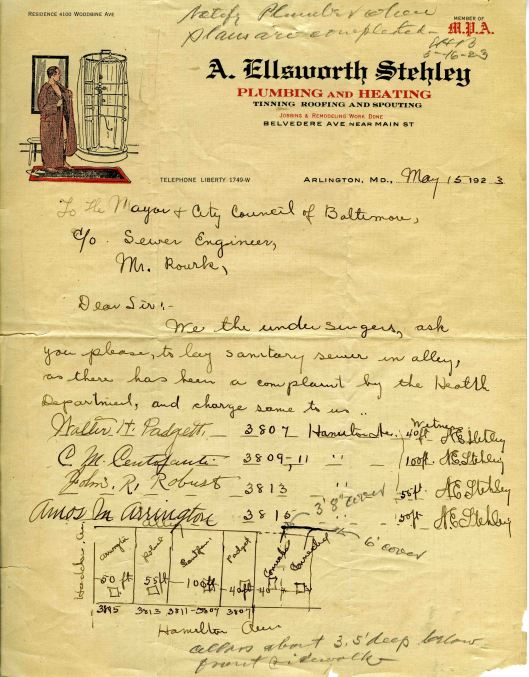 RESIDENCE 4100 WOODBINE AVE
Notify Plumber when
plans are completed
5-16-23
MEMBER OF
M.P.A.
A. Ellsworth Stehley
PLUMBING AND HEATING
TINNING ROOFING AND SPOUTING
JOBBING & REMODELING WORK DONE
BELVEDERE AVE NEAR MAIN ST
TELEPHONE LIBERTY 1749-W
ARLINGTON, MD., May 15 1923
To the Mayor & City Council of Baltimore,
c/o Sewer Engineer,
Mr. Rourk,
Dear Sir:-
We the undersingers, ask
you please, to lay sanitary sewer in alley,
as there has been a complaint by the Health
Department, and charge same to us..
Witness
Walter H. Padgett - 3807 Hamilton Ave. 40ft A.E. Stehley
C. M. Centofanti - 3809-11 " - 100ft. A.E. Stehley
Edm. R. Robust - 3813 " - 55ft A.E. Stehley
Amos M Arrington - 3815 " - 50ft A.E. Stehley
3'8" cover
6' cover
Alley
50 ft 55 ft 100ft 40ft 40
Connected Connected
3813 3811-3809 3807
Hamilton Ave
cellars about 3.5' deep below
front sidewalk